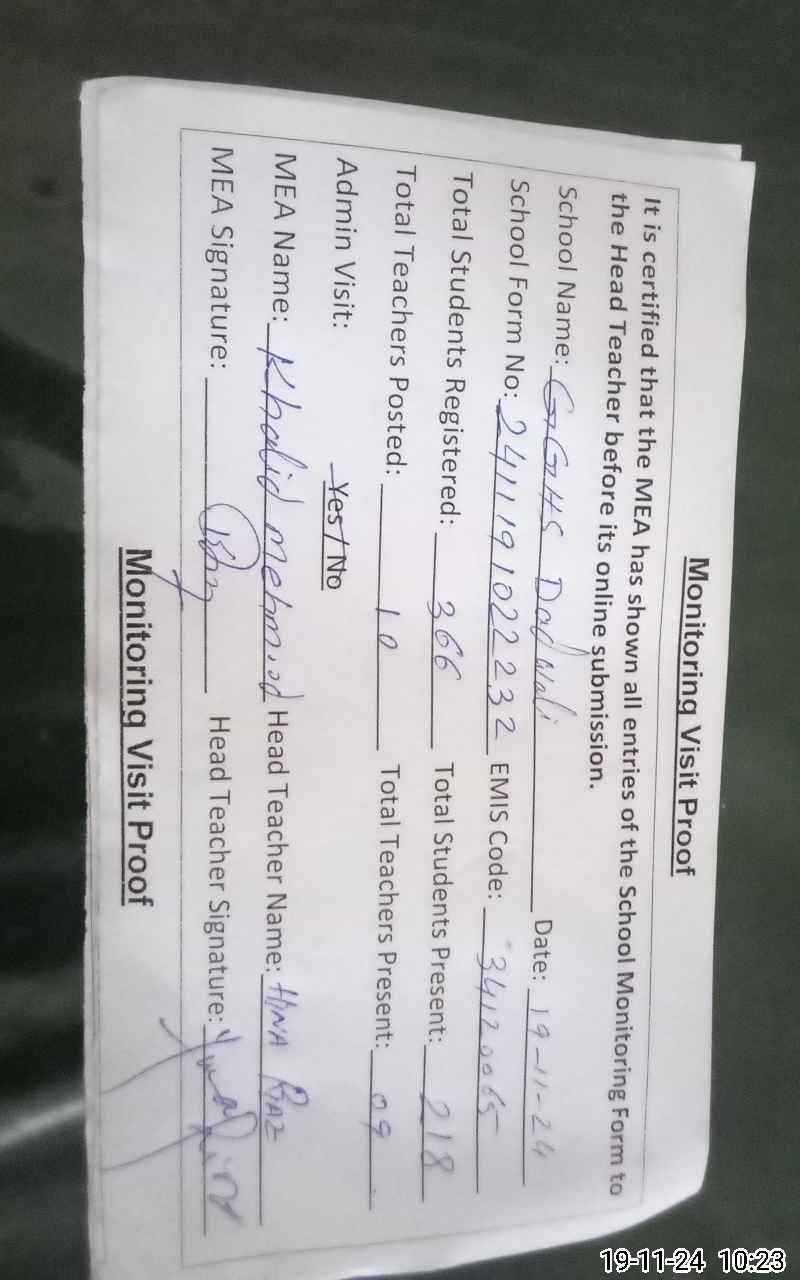 Monitoring Visit Proof
It is certified that the MEA has shown all entries of the School Monitoring Form to
the Head Teacher before its online submission.
School Name: GGHS Dadwali Date: 19-11-24
School Form No: 2411191022232 EMIS Code: 34120065
Total Students Registered: 366 Total Students Present: 218
Total Teachers Posted: 10 Total Teachers Present: 09
Admin Visit: Yes / No
MEA Name: Khalid Mehmood Head Teacher Name: HINA RAZ
MEA Signature: Head Teacher Signature:
Monitoring Visit Proof
19-11-24 10:23